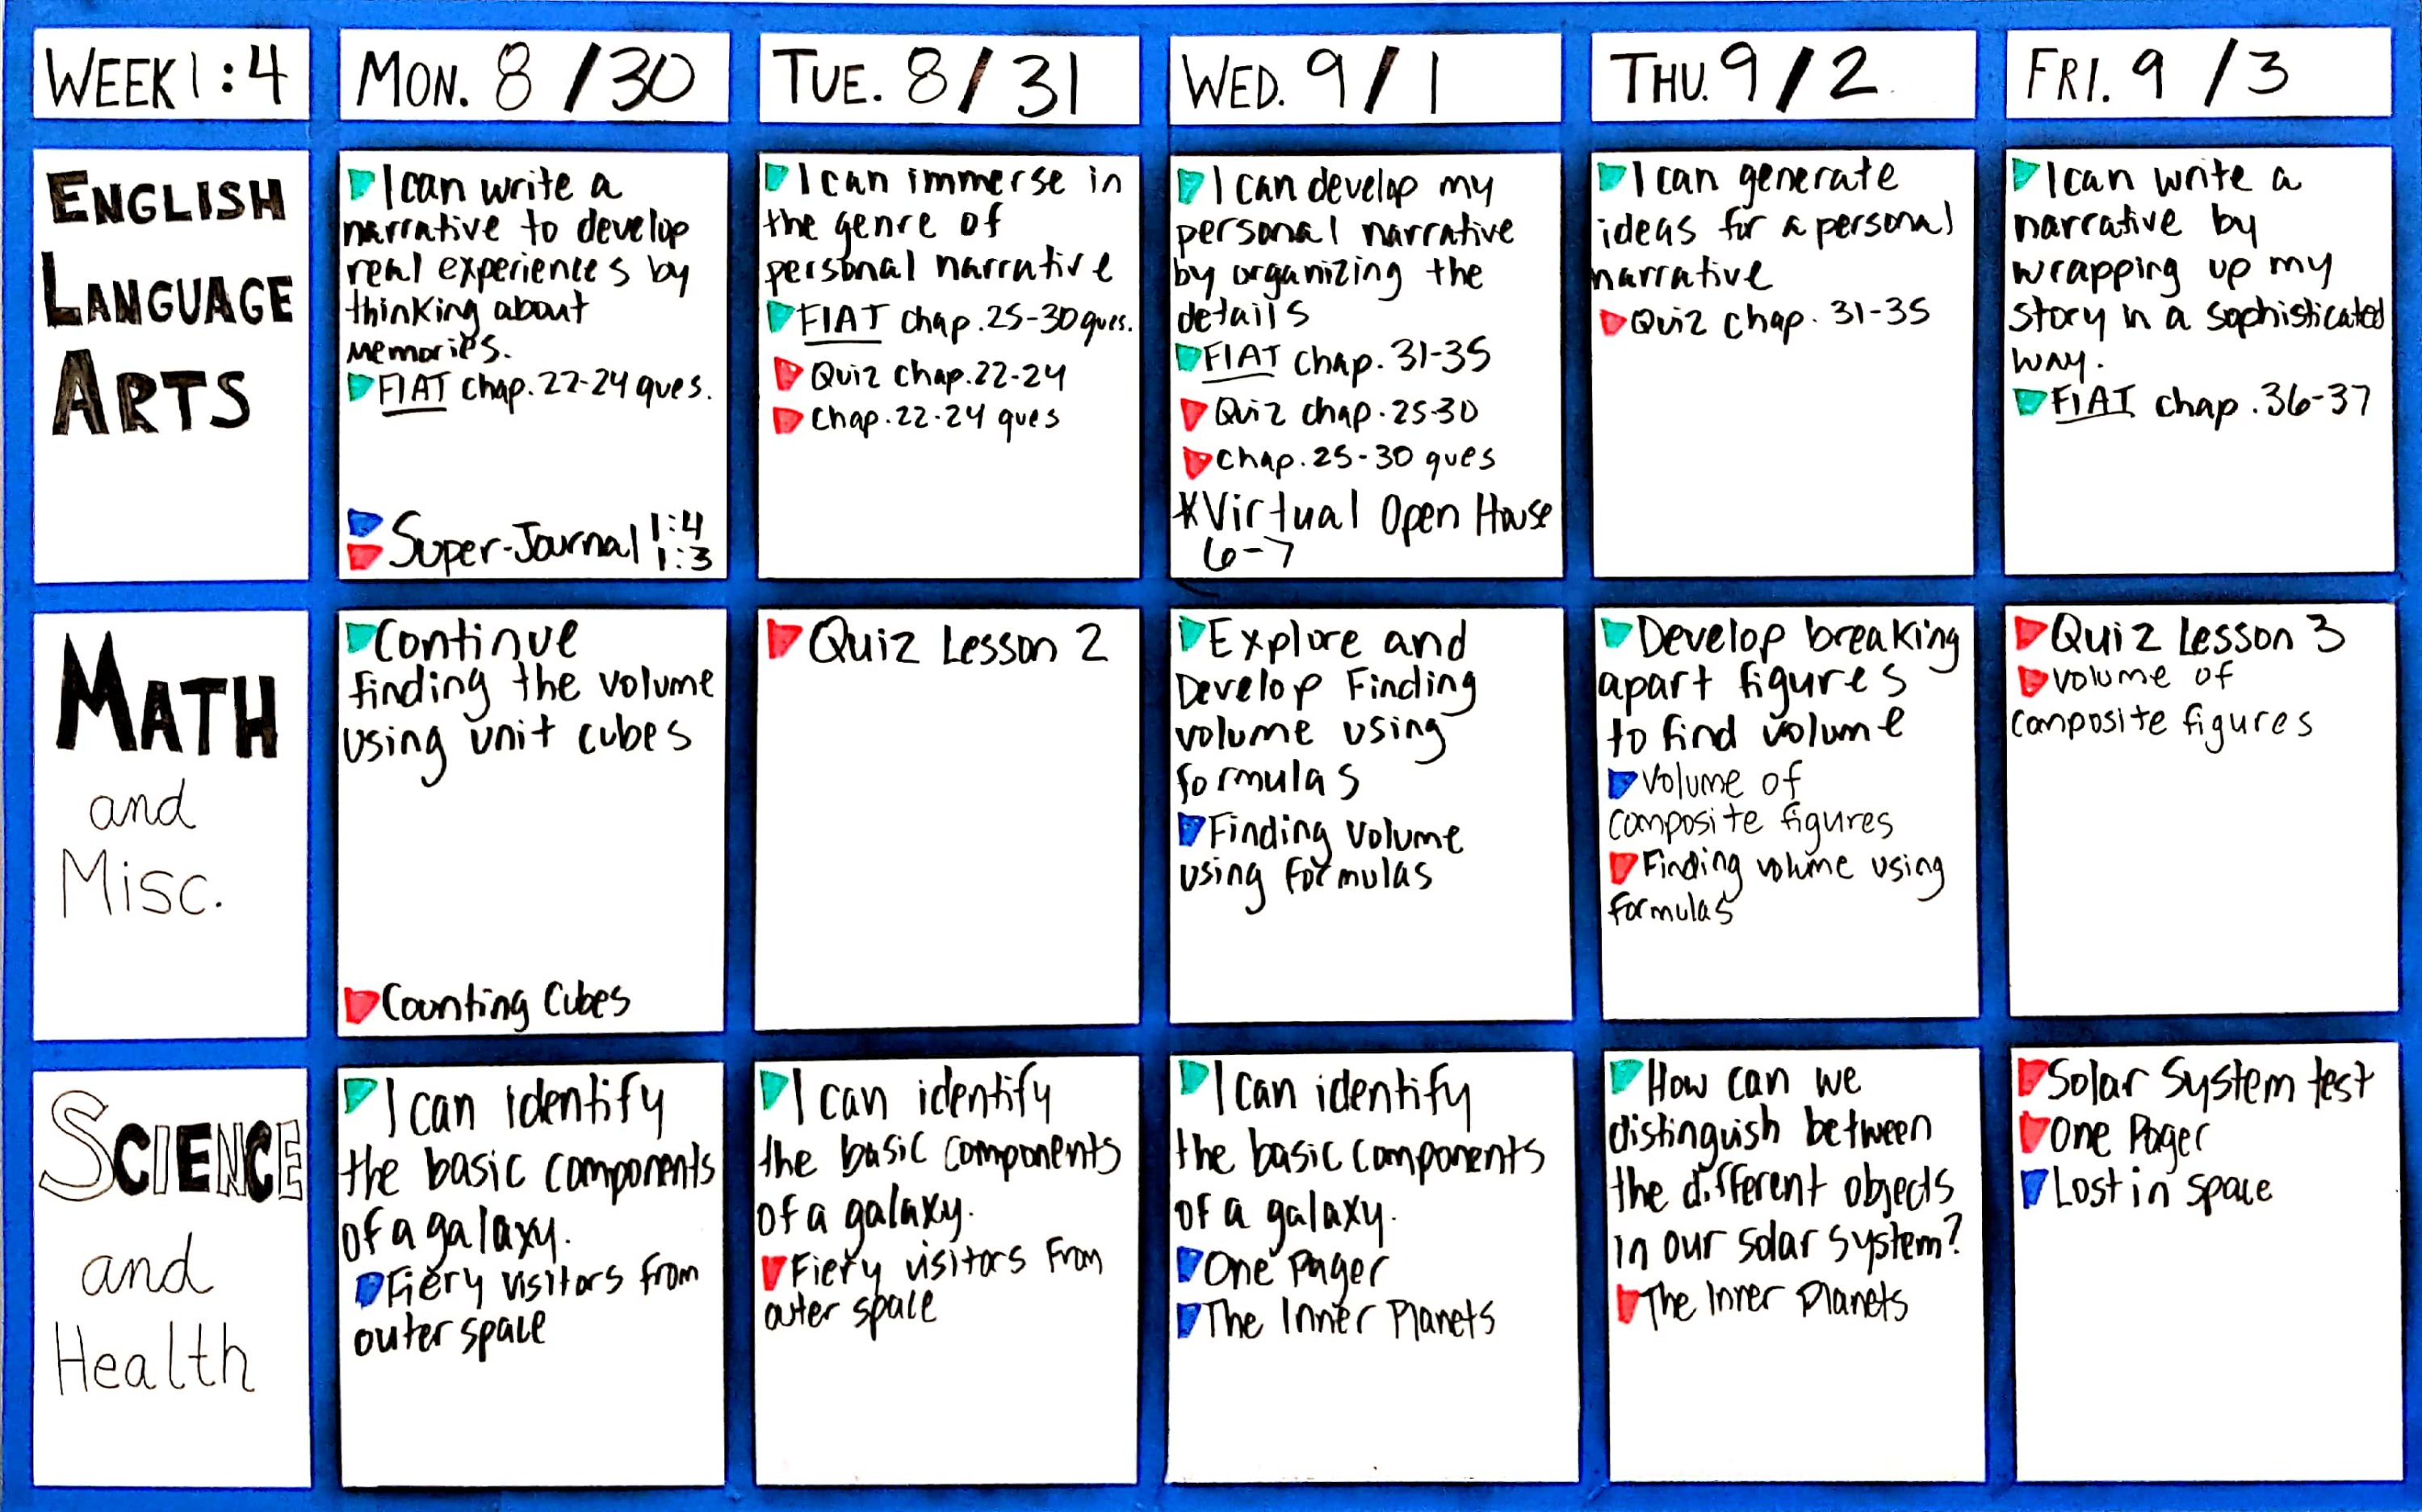 WEEK 1:4
MON. 8/30
TUE. 8/31
WED. 9/1
THU. 9/2
FRI. 9/3
ENGLISH
LANGUAGE
ARTS
I can write a
narrative to develop
real experiences by
thinking about
memories.
FIAT chap. 22-24 ques.
Super-Journal 1:4
1:3
I can immerse in
the genre of
personal narrative
FIAT chap. 25-30 ques.
Quiz chap. 22-24
Chap. 22-24 ques
I can develop my
personal narrative
by organizing the
details
FIAT chap. 31-35
Quiz chap. 25-30
Chap. 25-30 ques
*Virtual Open House
6-7
I can generate
ideas for a personal
narrative
Quiz chap. 31-35
I can write a
narrative by
wrapping up my
story in a sophisticated
way.
FIAT chap. 36-37
MATH
and
Misc.
Continue
finding the volume
using unit cubes
Counting Cubes
Quiz Lesson 2
Explore and
Develop Finding
volume using
formulas
Finding volume
using formulas
Develop breaking
apart figures
to find volume
Volume of
composite figures
Finding volume using
formulas
Quiz Lesson 3
volume of
composite figures
SCIENCE
and
Health
I can identify
the basic components
of a galaxy.
Fiery visitors from
outer space
I can identify
the basic components
of a galaxy.
Fiery visitors from
outer space
I can identify
the basic components
of a galaxy.
One Pager
The Inner Planets
How can we
distinguish between
the different objects
in our solar system?
The Inner Planets
Solar System test
One Pager
Lost in space